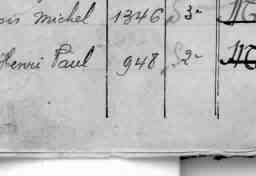 is Michel 1346 S 3- M
Henri Paul 948 S 2- M